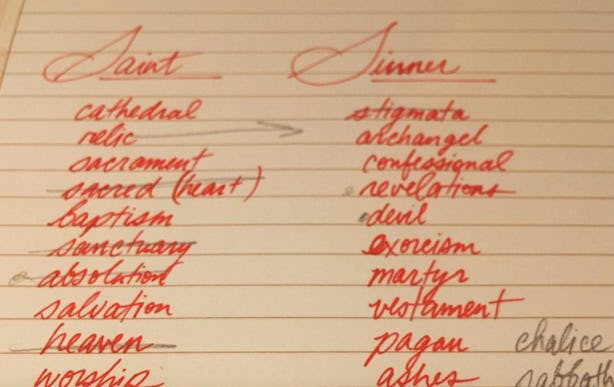 Saint
cathedral
relic
sacrament
sacred (heart)
baptism
sanctuary
absolution
salvation
heaven
worship
Sinner
stigmata
archangel
confessional
revelations
devil
exorcism
martyr
vestament
pagan
ashes
chalice
sabbath